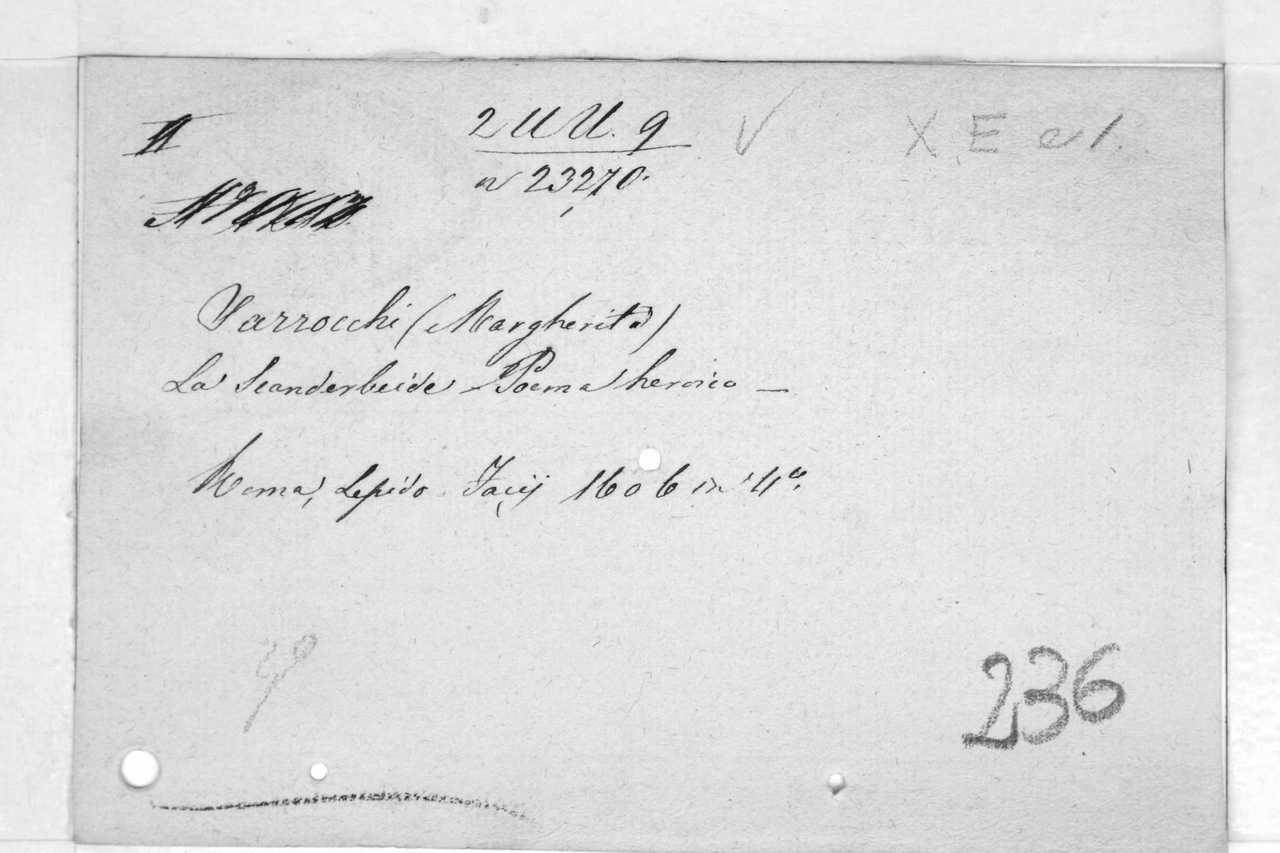 2 U U. 9
n 23,270.
V X E e 1.
Sarrocchi (Margherita)
La Scanderbeide Poema heroico —
Roma, Lepido Facij 1606 in 4º.
236